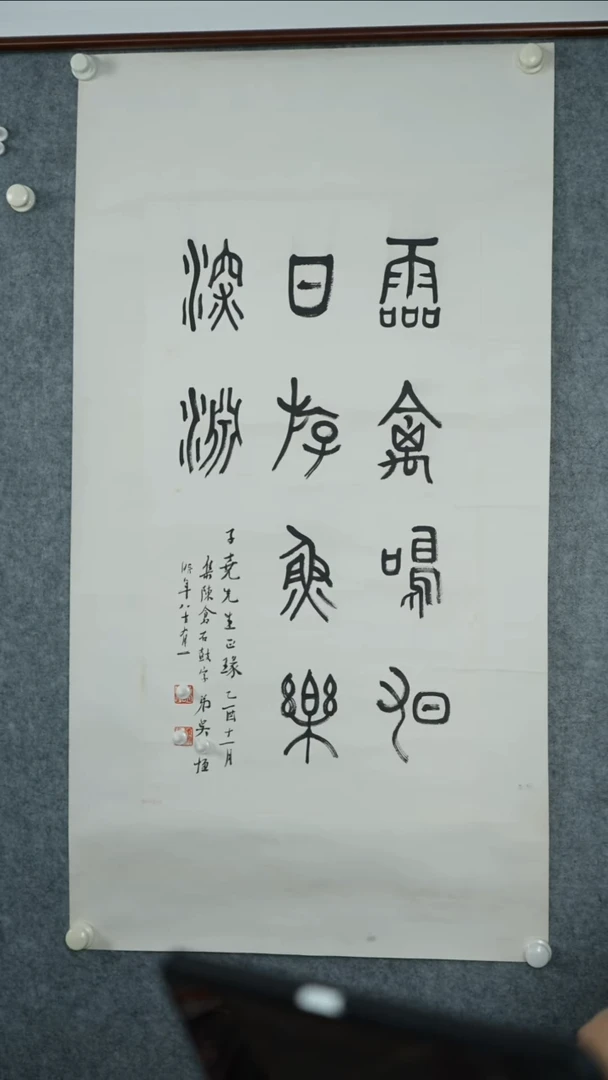 霝禽鳴旭
日斿魚樂
深淵
子堯先生正瑑 乙酉十一月
集陳倉石鼓字 弟吳恆
時年八十有一